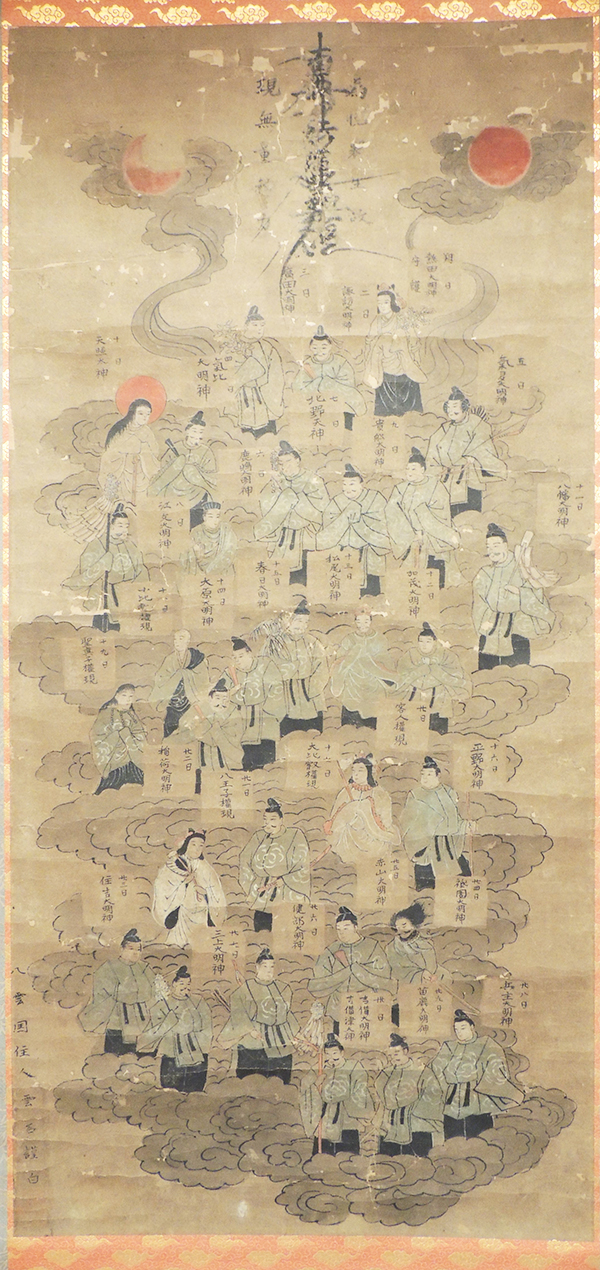 南無妙法蓮華経
為悦衆生故
現無量神力
朔日
熱田大明神
守護
二日
諏訪大明神
三日
廣田大明神
四日
氣比
大明神
五日
氣多大明神
七日
北野天神
十日
天照太神
九日
貴船大明神
六日
八日
江文大明神
十一日
八幡大明神
十二日
加茂大明神
十三日
松尾大明神
十五日
春日大明神
十四日
大原大明神
小比叡権現
十九日
聖真子権現
廿日
客人権現
十六日
平野大明神
大比叡権現
廿一日
八王子権現
廿二
稲荷大明神
廿四
祇園大明神
廿五日
赤山大明神
廿六日
健部大明神
廿三日
住吉大明神
廿七日
三上大明神
廿八日
兵主大明神
廿九日
苗鹿大明神
卅日
吉備大明神
八雲国住人